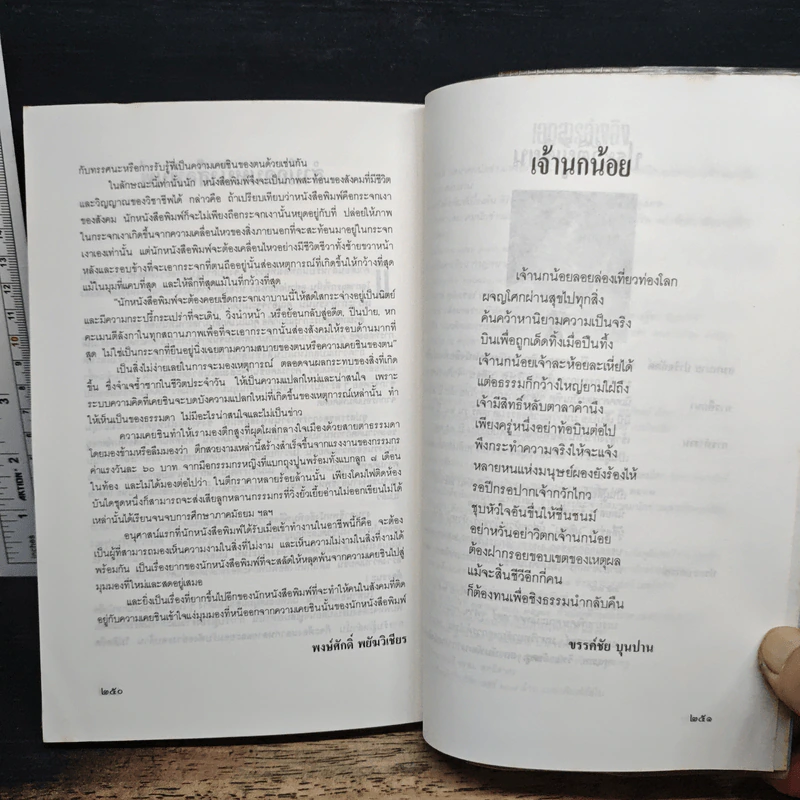 กับทรรศนะหรือการรับรู้ที่เป็นความเคยชินของตนด้วยเช่นกัน
ในลักษณะนี้เท่านั้นนัก หนังสือพิมพ์จึงจะเป็นภาพสะท้อนของสังคมที่มีชีวิต
และวิญญาณของวิชาชีพได้ กล่าวคือ ถ้าเปรียบเทียบว่าหนังสือพิมพ์คือกระจกเงา
ของสังคม นักหนังสือพิมพ์ก็จะไม่เพียงถือกระจกเงานั้นหยุดอยู่กับที่ ปล่อยให้ภาพ
ในกระจกเงาเกิดขึ้นจากความเคลื่อนไหวของสิ่งภายนอกที่จะสะท้อนมาอยู่ในกระจก
เงาเองเท่านั้น แต่นักหนังสือพิมพ์จะต้องเคลื่อนไหวอย่างมีชีวิตชีวาทั้งซ้ายขวาหน้า
หลังและรอบข้างที่จะเอากระจกที่ตนถืออยู่นั้นส่องเหตุการณ์ที่เกิดขึ้นให้กว้างที่สุด
แม้ในมุมที่แคบที่สุด และให้ลึกที่สุดแม้ในที่กว้างที่สุด
"นักหนังสือพิมพ์จะต้องคอยเช็ดกระจกเงาบานนี้ให้สดใสกระจ่างอยู่เป็นนิตย์
และมีความกระปรี้กระเปร่าที่จะเดิน, วิ่งนำหน้า หรือย้อนกลับสู่อดีต, ปีนป่าย, หก
คะเมนตีลังกาในทุกสถานภาพเพื่อที่จะเอากระจกนั้นส่องสังคมให้รอบด้านมากที่
สุด ไม่ใช่เป็นกระจกที่ยืนอยู่นิ่งเฉยตามความสบายของตนหรือความเคยชินของตน"
เป็นสิ่งไม่ง่ายเลยในการจะมองเหตุการณ์ ตลอดจนผลกระทบของสิ่งที่เกิด
ขึ้น ซึ่งจำเจซ้ำซากในชีวิตประจำวัน ให้เป็นความแปลกใหม่และน่าสนใจ เพราะ
ระบบความคิดที่เคยชินจะบดบังความแปลกใหม่ที่เกิดขึ้นของเหตุการณ์เหล่านั้น ทำ
ให้เห็นเป็นของธรรมดา ไม่มีอะไรน่าสนใจและไม่เป็นข่าว
ความเคยชินทำให้เรามองตึกสูงที่ผุดโผล่กลางใจเมืองด้วยสายตาธรรมดา
โดยมองข้ามหรือลืมมองว่า ตึกสวยงามเหล่านี้สร้างสำเร็จขึ้นจากแรงงานของกรรมกร
ค่าแรงวันละ ๖๐ บาท จากมือกรรมกรหญิงที่แบกถุงปูนพร้อมทั้งแบกลูก ๘ เดือน
ในท้อง และไม่ได้มองต่อไปว่า ในตึกราคาหลายร้อยล้านนั้น เพียงโคมไฟติดห้อง
บันไดชุดหนึ่งก็สามารถจะส่งเสียลูกหลานกรรมกรที่วิ่งยั้วเยี้ยอ่านไม่ออกเขียนไม่ได้
เหล่านั้นได้เรียนจนจบการศึกษาภาคมัธยม ฯลฯ
อนุศาสน์แรกที่นักหนังสือพิมพ์ได้รับเมื่อเข้าทำงานในอาชีพนี้ก็คือ จะต้อง
เป็นผู้ที่สามารถมองเห็นความงามในสิ่งที่ไม่งาม และเห็นความไม่งามในสิ่งที่งามได้
พร้อมกัน เป็นเรื่องยากของนักหนังสือพิมพ์ที่จะสลัดให้หลุดพ้นจากความเคยชินไปสู่
มุมมองที่ใหม่และสดอยู่เสมอ
และยิ่งเป็นเรื่องที่ยากขึ้นไปอีกของนักหนังสือพิมพ์ที่จะทำให้คนในสังคมที่ติด
อยู่กับความเคยชินเข้าใจแง่มุมมองที่หนีออกจากความเคยชินนั้นของนักหนังสือพิมพ์
พงษ์ศักดิ์ พยัฆวิเชียร
๒๕๐
เจ้านกน้อย
เจ้านกน้อยลอยล่องเที่ยวท่องโลก
ผจญโศกผ่านสุขไปทุกสิ่ง
ค้นคว้าหานิยามความเป็นจริง
บินเพื่อถูกเด็ดทิ้งเมื่อปีนทิ้ง
เจ้านกน้อยเจ้าละห้อยละเหี่ยได้
แต่อธรรมก็กว้างใหญ่ยามใฝ่ถึง
เจ้ามีสิทธิ์หลับตาลาคำนึง
เพียงครู่หนึ่งอย่าท้อบินต่อไป
พึงกระทำความจริงให้จะแจ้ง
หลายหนแห่งมนุษย์ผองยังร้องไห้
รอปีกรอปากเจ้ากวักไกว
ชุบหัวใจอันขื่นให้ชื่นชนม์
อย่าหวั่นอย่าวิตกเจ้านกน้อย
ต้องฝากรอยขอบเขตของเหตุผล
แม้จะสิ้นชีวีอีกกี่คน
ก็ต้องทนเพื่อชิงธรรมนำกลับคืน
ขรรค์ชัย บุนปาน
๒๕๑